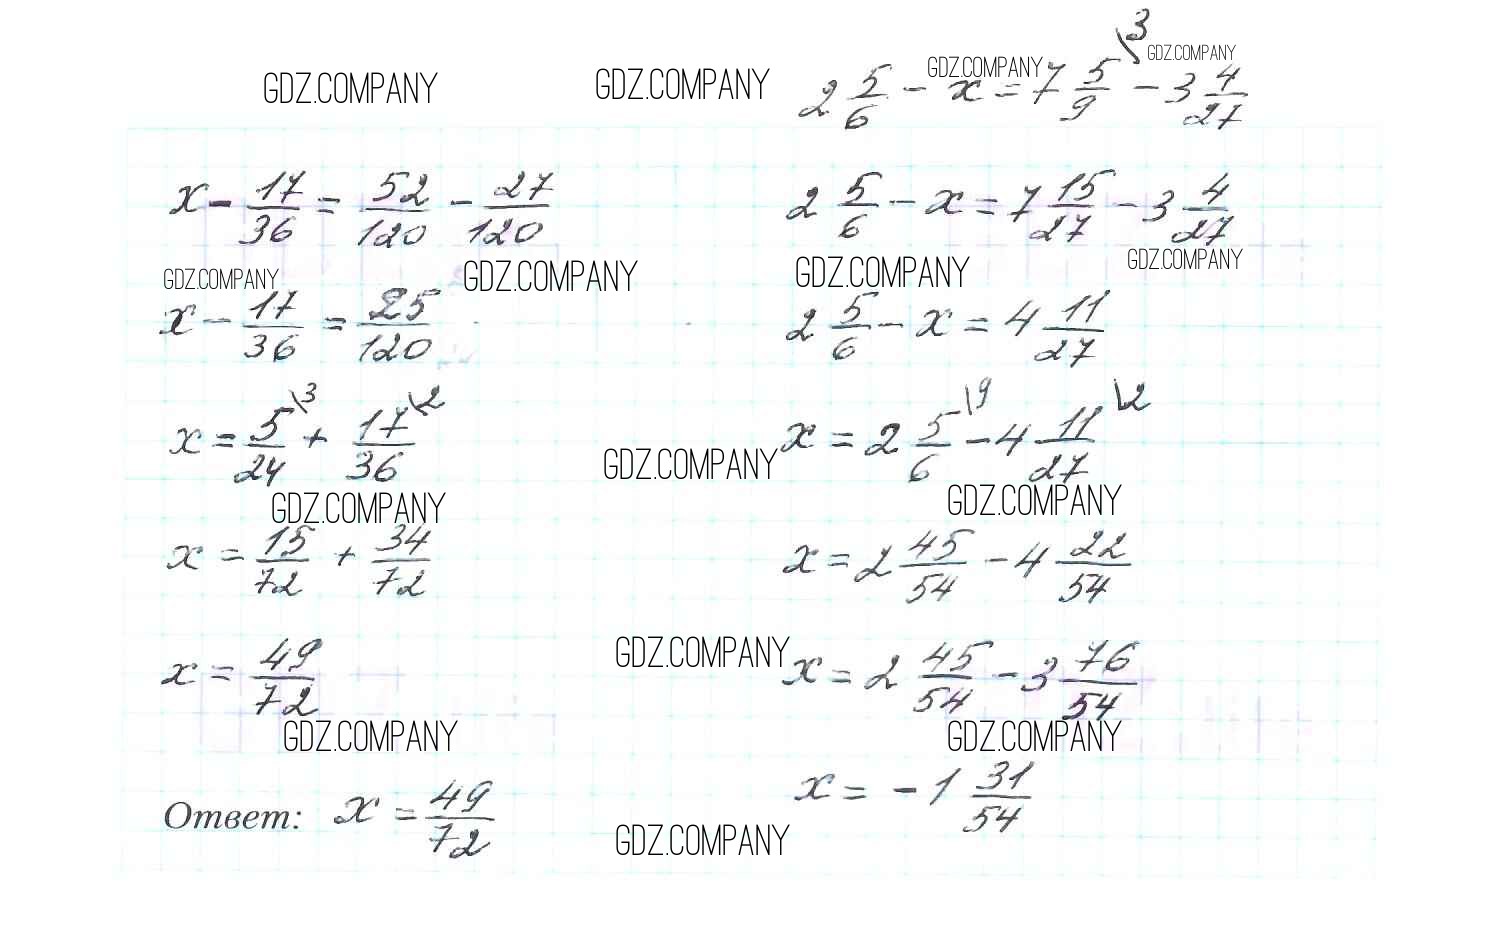 GDZ.COMPANY GDZ.COMPANY GDZ.COMPANY GDZ.COMPANY
2 5/6 - x = 7 5/9 \3 - 3 4/27
x - 17/36 = 52/120 - 27/120
GDZ.COMPANY GDZ.COMPANY
x - 17/36 = 25/120
x = 5/24 \3 + 17/36 \2
GDZ.COMPANY
x = 15/72 + 34/72
x = 49/72
GDZ.COMPANY
Ответ: x = 49/72
2 5/6 - x = 7 15/27 - 3 4/27
GDZ.COMPANY GDZ.COMPANY
2 5/6 - x = 4 11/27
GDZ.COMPANY
x = 2 5/6 \9 - 4 11/27 \2
GDZ.COMPANY
x = 2 45/54 - 4 22/54
GDZ.COMPANY
x = 2 45/54 - 3 76/54
GDZ.COMPANY
x = -1 31/54
GDZ.COMPANY